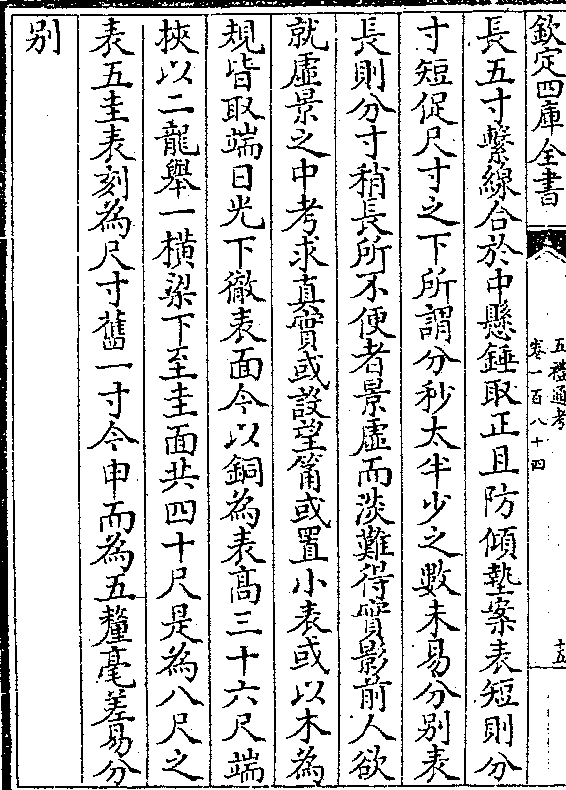 欽定四庫全書
五禮通考
卷一百八十四
十五
長五寸繫線合於中懸錘取正且防傾墊案表短則分
寸短促尺寸之下所謂分秒太半少之數未易分别表
長則分寸稍長所不便者景虛而淡難得實影前人欲
就虛景之中考求真實或設望筩或置小表或以木為
規皆取端日光下徹表面今以銅為表高三十六尺端
挾以二龍舉一橫梁下至圭面共四十尺是為八尺之
表五圭表刻為尺寸舊一寸今申而為五釐毫差易分
别